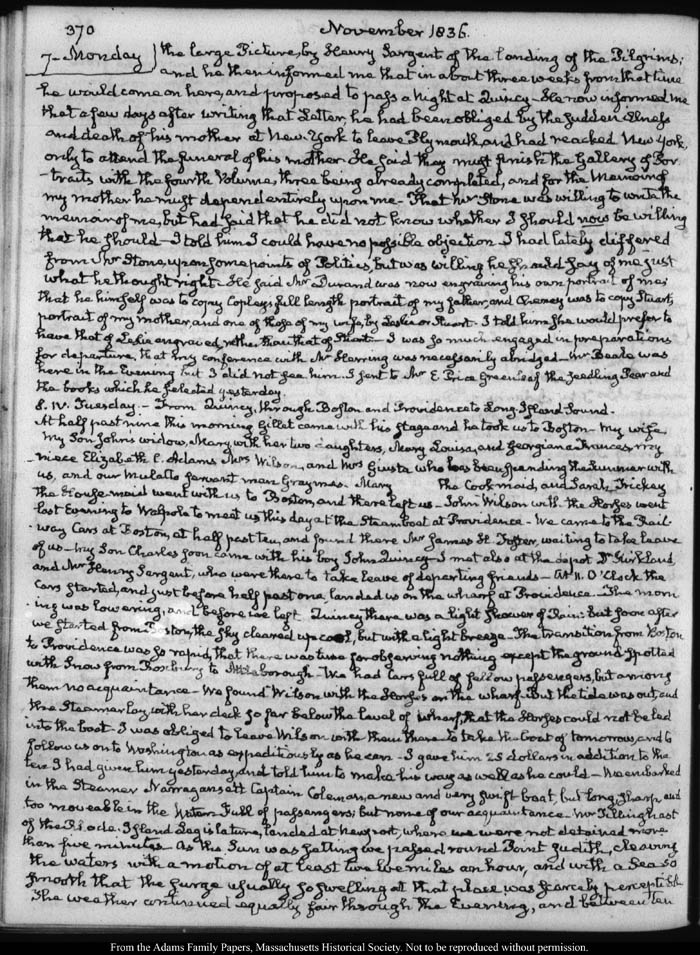 370 November 1836.
7. Monday the large Picture, by Henry Sargent of the landing of the Pilgrims;
and he then informed me that in about three weeks from that time
he would come on here, and proposed to pass a night at Quincy. He now informed me
that a few days after writing that Letter, he had been obliged by the sudden illness
and death of his mother at New York to leave Plymouth, and had reached New York,
only to attend the funeral of his mother. He said they must finish the Gallery of Por-
-traits with the fourth Volume, three being already completed, and for the Memoir of
my mother he must depend entirely upon me. That Mr Stone was willing to write the
memoir of me, but had said that he did not know whether I should now be willing
that he should. I told him I could have no possible objection. I had lately differed
from Mr Stone, upon some points of Politics, but was willing he should say of me just
what he thought right. He said Mr Durand was now engraving his own portrait of me;
that he himself was to copy Copley's full length portrait of my father, and Cheney was to copy Stuart's
portrait of my mother, and one of those of my wife, by Leslie or Stuart. I told him she would prefer to
have that of Leslie engraved, rather than that of Stuart. I was so much engaged in preparations
for departure, that my conference with Mr Herring was necessarily abridged. Mr Beale was
here in the Evening but I did not see him. I sent to Mr E. Price Greenleaf the seedling Pear and
the books which he selected yesterday.
8. IV. Tuesday. — From Quincy, through Boston and Providence to Long-Island Sound.
At half past nine this morning Gillet came with his Stage and he took us to Boston. My wife
My Son John's widow, Mary with her two daughters, Mary Louisa, and Georgiana Frances, my
niece Elizabeth C. Adams Mrs Wilson, and Mrs Giusta who has been spending the Summer with
us, and our Mulatto servant man Graymes. Mary the Cook maid, and Sarah Trickey
the House maid went with us to Boston, and there left us. John Wilson with the Horses went
last Evening to Walpole to meet us this day at the Steamboat at Providence. We came to the Rail-
way Cars at Boston, at half past ten, and found there Mr James H. Foster, waiting to take leave
of us. My Son Charles soon came with his boy John Quincy. I met also at the depot Dr Kirkland
and Mr Henry Sargent, who were there to take leave of departing friends. At 11. O'Clock the
Cars started, and just before half past one, landed us on the wharf at Providence. The morn-
-ing was lowering, and before we left Quincy there was a light shower of Rain: But soon after
we started from Boston, the sky cleared up cool, but with a light breeze. The transition from Boston
to Providence was so rapid, that there was time for observing nothing except the ground spotted
with snow from Roxbury to Attleborough. We had Cars full of fellow passengers, but among
them no acquaintance. We found Wilson with the Horses on the wharf. But the tide was out, and
the Steamer lay with her deck so far below the level of wharf, that the Horses could not be led
into the boat. I was obliged to leave Wilson with them there to take the boat of tomorrow, and to
follow us on to Washington as expeditiously as he can. I gave him 25 dollars in addition to the
ten I had given him yesterday, and told him to make his way as well as he could. We embarked
in the Steamer Narragansett Captain Coleman, a new and very swift boat, but long, sharp and
too moveable in the Full of passengers; but none of our acquaintance. Mr Tillinghast
of the R. Island Legislature, landed at Newport, where we were not detained more
than five minutes. As the Sun was setting we passed round Point Judith, cleaving
the waters with a motion of at least twelve miles an hour, and with a sea so
smooth that the surge usually so swelling at that place was scarcely perceptible
The weather continued equally fair through the Evening, and between ten
From the Adams Family Papers, Massachusetts Historical Society. Not to be reproduced without permission.